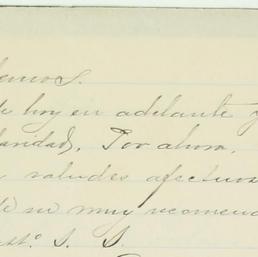 de hoy en adelante
laridad, Por ahora,
saludes afectuos
de su muy recomend
atto. S. S.